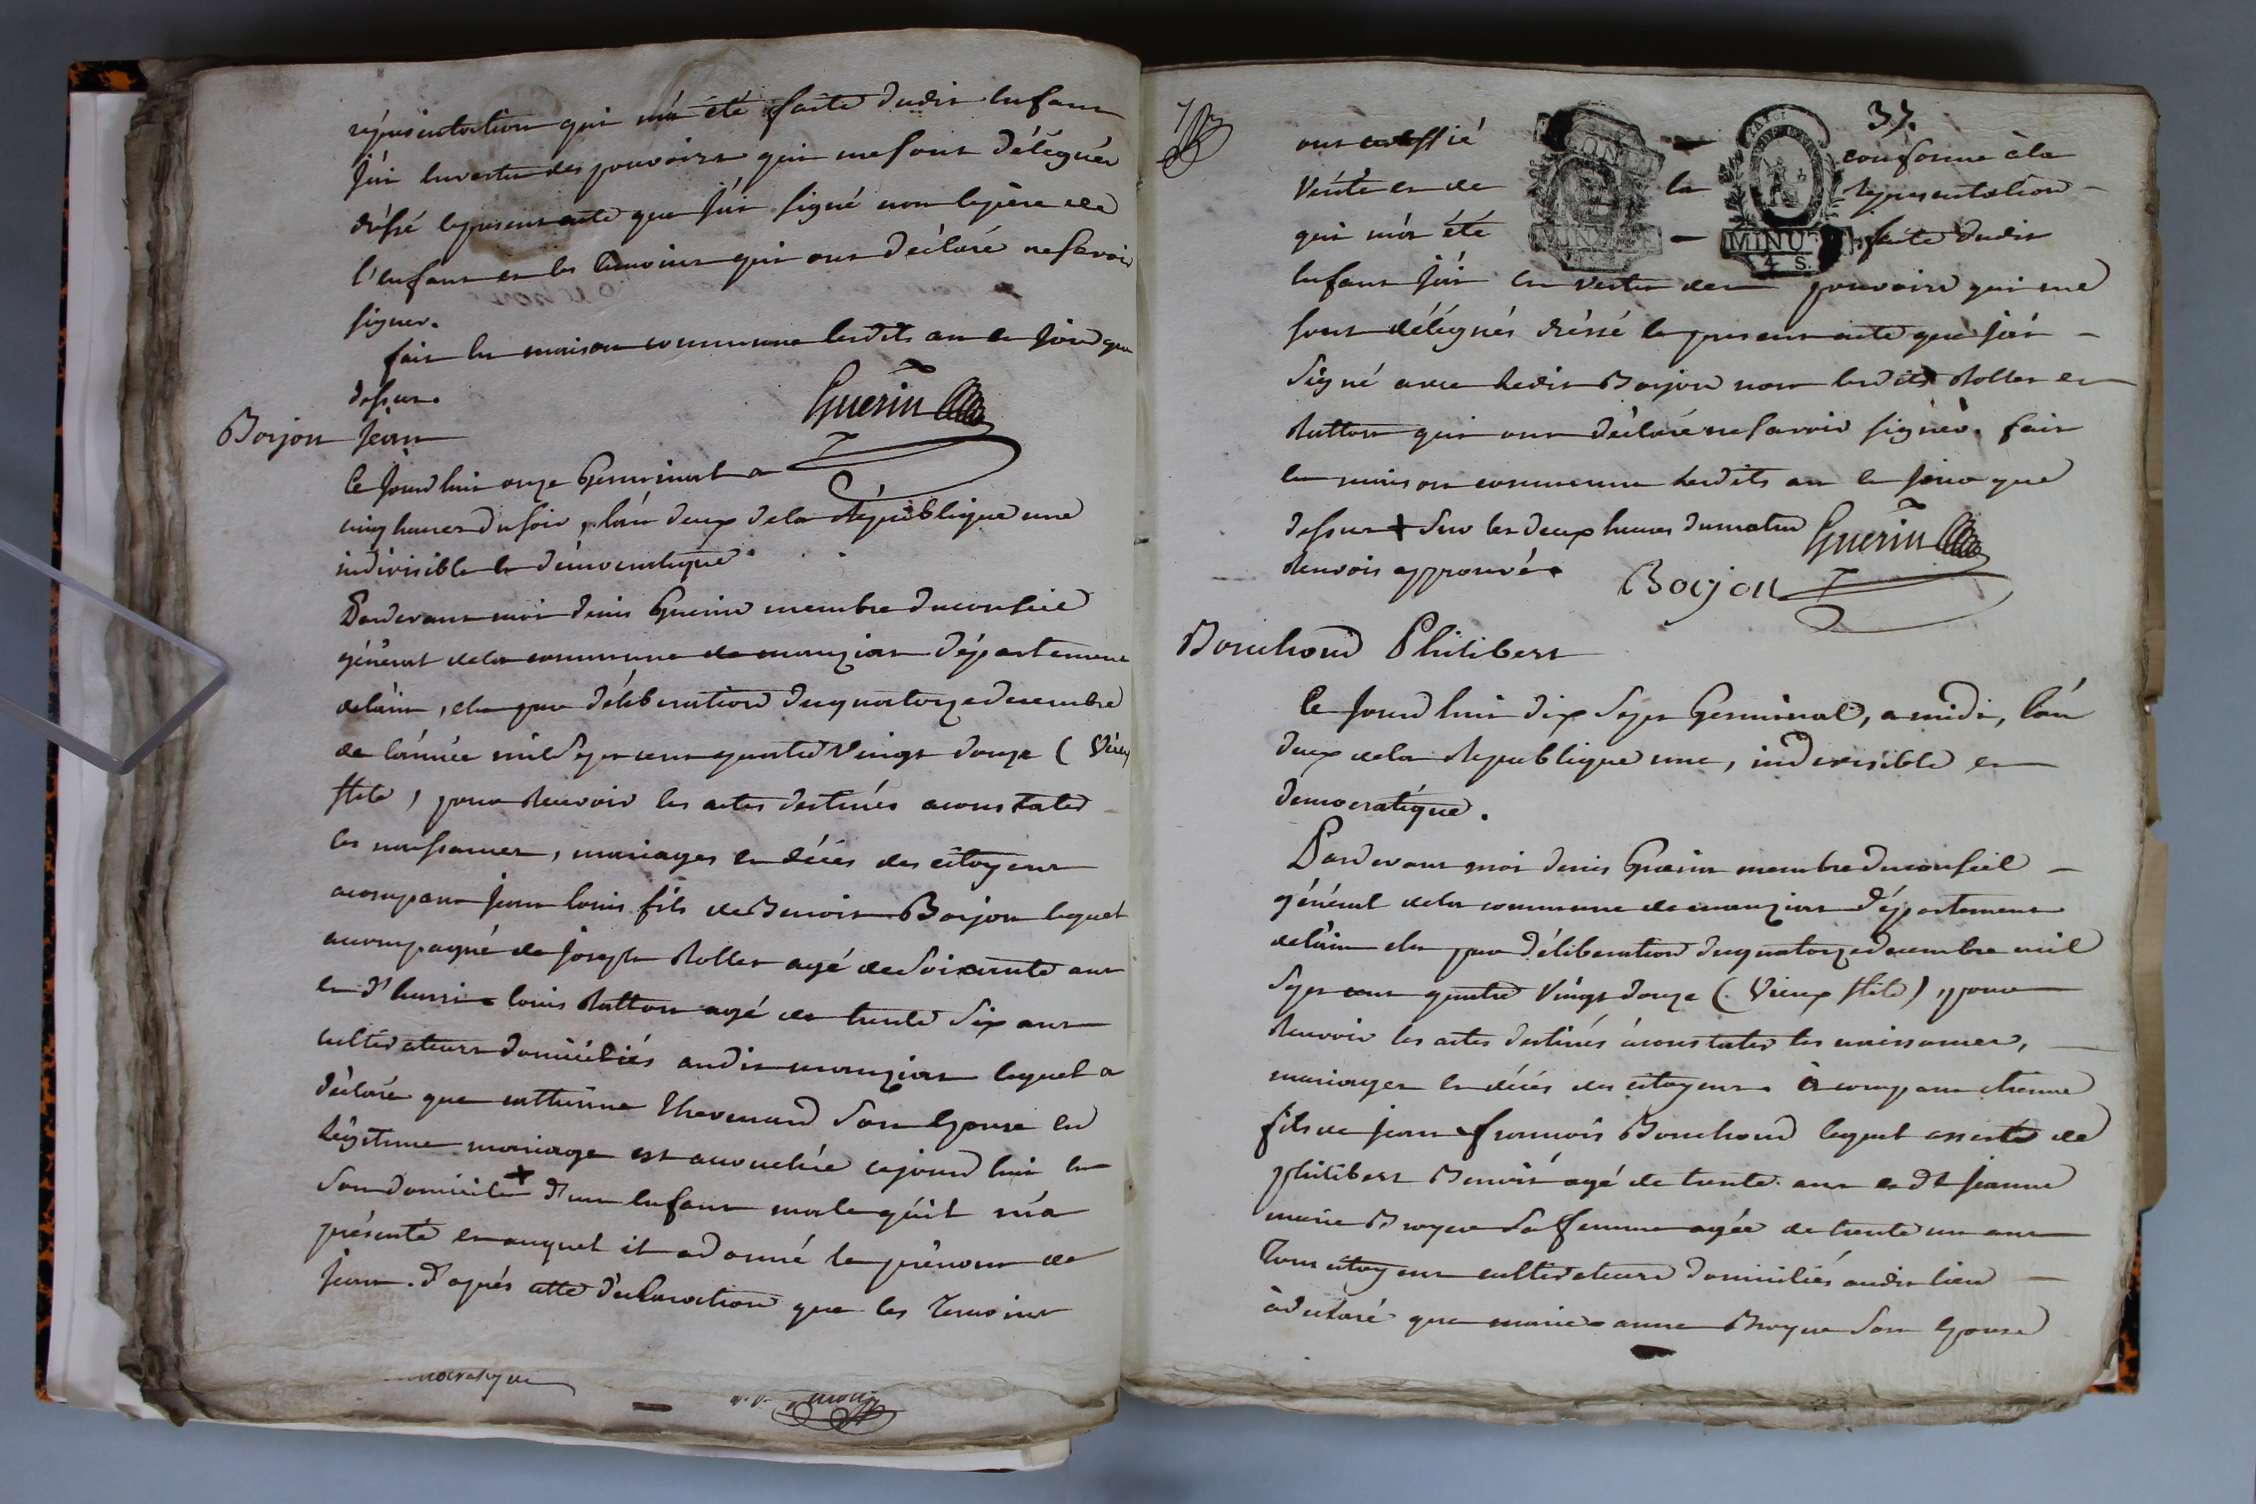 représentation qui m'a été faite dudit enfant
j'ai en vertu des pouvoirs qui me sont délégués
dressé le present acte que j'ai signé non le père de
l'enfant et les témoins qui ont déclaré ne savoir
signer.
fait en maison commune lesdits an et jour que
dessus.
Guerin
Borjon Jean
Ce jourd'hui onze Germinal a
cinq heures du soir, l'an deux de la République une
indivisible et démocratique
Pardevant moi denis Guerin membre du conseil
général de la commune de manziat département
de l'ain, elu par déliberation du quatorze decembre
de l'année mil sept cent quatre vingt douze (vieux
stile) pour recevoir les actes destinés a constater
les naissances, mariages et décés des citoyens
a comparu jean louis fils de Benoit Borjon lequel
accompagné de joseph Rollet agé de soixante ans
et d'henri louis Rutton agé de trente six ans
cultivateurs domiciliés audit manziat lequel a
déclaré que catherine Thevenard son epouse en
légitime mariage est accouchée cejourd'hui en
son domicile + d'un enfant male qu'il m'a
présenté et auquel il a donné le prénom de
jean. d'après cette déclaration que les temoins
37.
ont certifié conforme à la
vérité et de la représentation
qui m'a été faite dudit
MINUTE
4 S.
enfant j'ai en vertu des pouvoirs qui me
sont délégués dressé le present acte que j'ai
signé avec ledit Borjon non lesdits Rollet et
Rutton qui ont déclaré ne savoir signer. fait
en maison commune lesdits an et jour que
dessus + sur les deux heures du matin
Renvois approuvé. Guerin
Borjon
Bouchoud Philibert
Ce jourd'hui dix sept Germinal, a midi, l'an
deux de la Republique une, indivisible et
democratique.
Pardevant moi denis Guerin membre du conseil
général de la commune de manziat département
de l'ain elu par déliberation du quatorze decembre mil
sept cent quatre vingt douze (vieux stile), pour
recevoir les actes destinés à constater les naissances,
mariages et décés des citoyens. a comparu etienne
fils de jean francois Bouchoud lequel assisté de
philibert Benoit agé de trente ans et de jeanne
marie Broyer sa femme agée de trente un ans
tous citoyens cultivateurs domiciliés audit lieu
à déclaré que marie anne Broyer son epouse